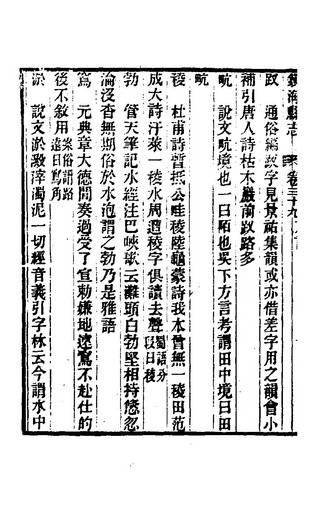 鎮海縣志　卷三十九
䟕　通俗編䟕字見景祐集韻或亦借差字用之韻會小
補引唐人詩枯木嚴前䟕路多
畖　說文畖境也一曰陌也吳下方言考謂田中境曰田
畖
稜　杜甫詩塹抵公畦稜陸龜蒙詩我本曾無一稜田范
成大詩汙萊一稜水周遭稜字俱讀去聲蜀語分段曰稜
勃　管天筆記水經注巴峽歌云灘頭白勃堅相持倐忽
淪沒杳無期俗於水泡謂之勃乃是雅語
寫　元典章大德間奏過受了宣勅嫌地遠寫不赴仕的
後不敘用案俗謂路遠曰寫角
淤　說文淤澱滓濁泥一切經音義引字林云今謂水中